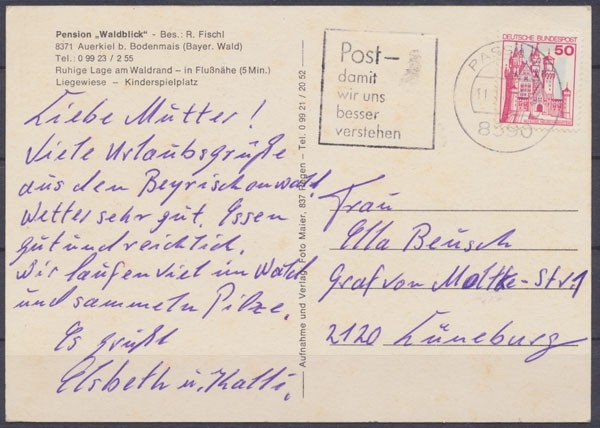 Pension „Waldblick" - Bes.: R. Fischl
8371 Auerkiel b. Bodenmais (Bayer. Wald)
Tel.: 0 99 23 / 2 55
Ruhige Lage am Waldrand – in Flußnähe (5 Min.)
Liegewiese – Kinderspielplatz
Liebe Mutter!
Viele Urlaubsgrüße
aus den Beyrischenwald
Wetter sehr gut. Essen
gut und reichlich.
Wir laufen viel im Wald
und sammeln Pilze.
Es grüßt
Elsbeth u.
Aufnahme und Verlag: Foto Maier, 837 Regen – Tel. 0 99 21 / 20 52
Post –
damit
wir uns
besser
verstehen
PASSAU
11.
8390
DEUTSCHE BUNDESPOST
50
Frau
Ella Beusch
Graf von Moltke-Str. 1
2120 Lüneburg